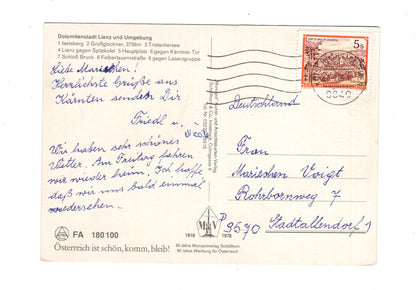 Dolomitenstadt Lienz und Umgebung
1 Iselsberg 2 Großglockner, 3798m 3 Tristachersee
4 Lienz gegen Spitzkofel 5 Hauptplatz 6 gegen Kärntner Tor
7 Schloß Bruck 8 Felbertauernstraße 9 gegen Laserzgruppe
Liebe Mariechen!
Herzlichste Grüße aus
Kärnten senden Dir
Friedl u.
Wir haben sehr schönes
Wetter. Am Freitag fahren
wir wieder heim. Ich hoffe
daß wir uns bald einmal
wiedersehen.
FA 180 100
Österreich ist schön, komm, bleib!
1918 1978
60 Jahre Monopolverlag Schöllhorn
60 Jahre Werbung für Österreich
5s
Deutschland
Frau
Mariechen Voigt
Rohrbornweg 7
3570 Stadtallendorf 1